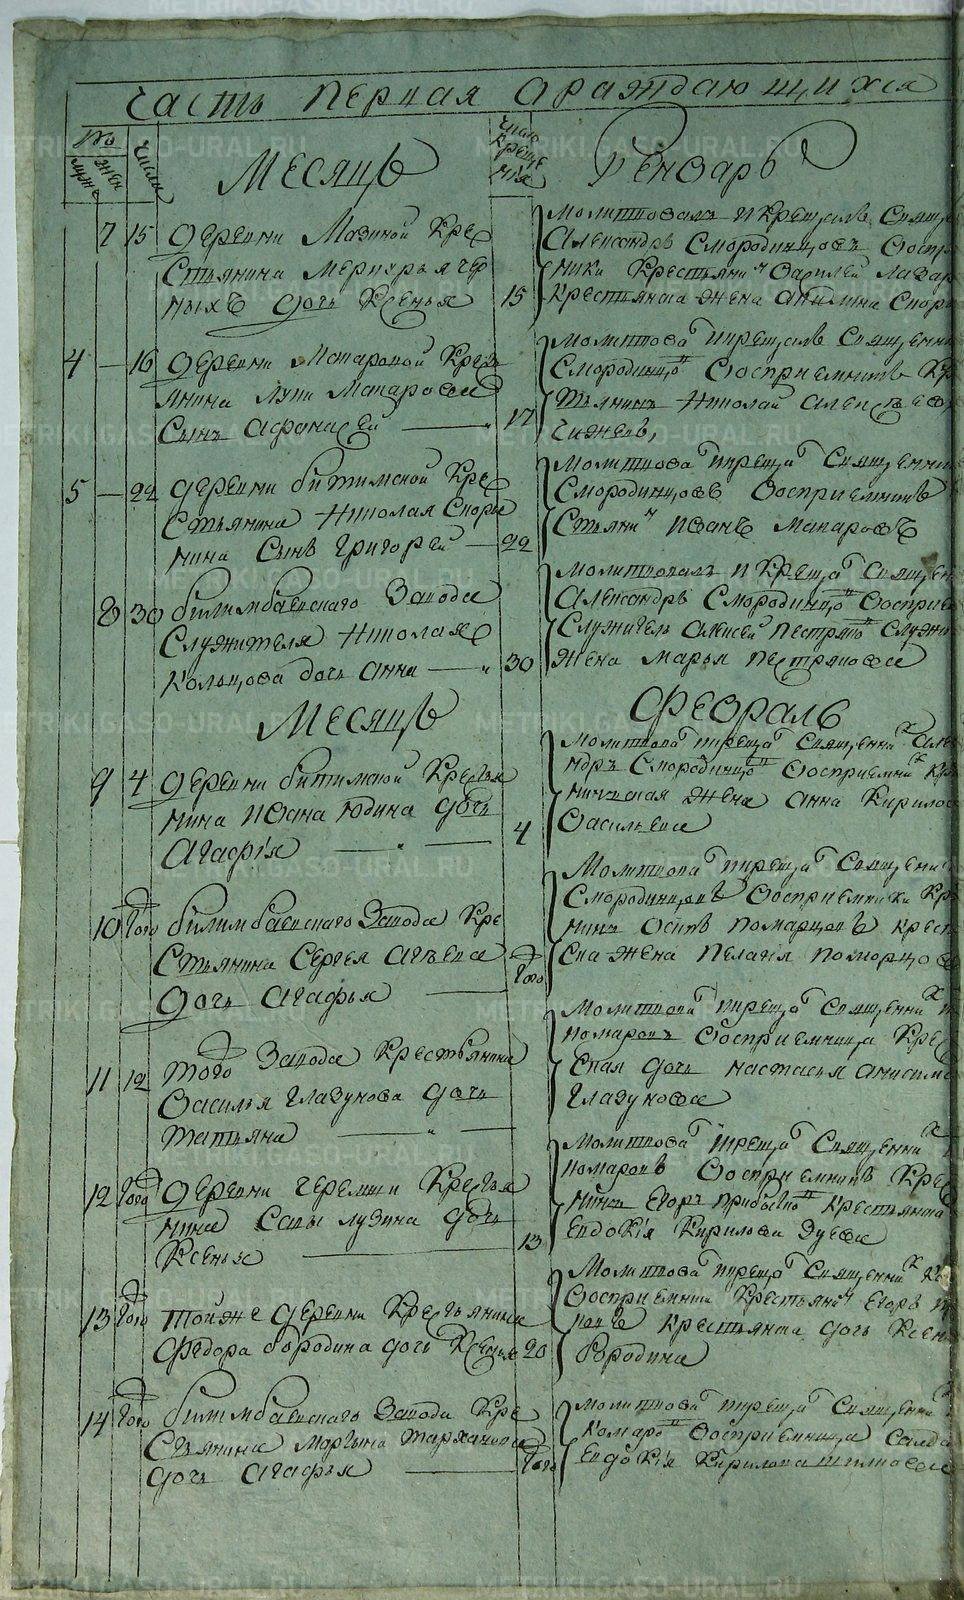 часть первая о раждающихся
№
муже
жен
числа
Месяцъ
число
креще
нія
Генварь
7 15 деревни Мазиной Кре
стьянина Меркурья Чер
ныхъ дочь Ксенья
15
молитвовалъ и крестилъ свяще
Александръ Смородинцовъ воспр
ники крестьянинъ Василей Лазар
крестьянска жена Акилина Спор
4 — 16 деревни Макаровой Кресть
янина Луки Макарова
сынъ Афанасей — 17
молитвова и крестилъ священни
Смородинцо воспріемникъ Кр
тьянинъ Николай Алексеевъ
Чижевъ,
5 — 22 деревни битимской Кре
стьянина Николая Споры
нина сынъ Григорей — 22
молитвова и креща священни
Смородинцовъ воспріемникъ
стьяни Иванъ Макаровъ
8 30 билимбаевскаго завода
служителя Николая
Кольцова дочь Анна — 30
молитвовалъ и креща священ
Александръ Смородинцо воспріе
служитель Алексей Пестряко служи
жена Марья Пестрякова
Месяцъ
Февраль
9 4 деревни битимской Крестья
нина Ивана Юдина дочь
Агафія — 4
молитвова и креща священни Але
ндръ Смородинцо воспріемни Кр
нинская жена Анна Кирилов
Васильева
10 того билимбаевскаго завода Кре
стьянина Сергея Агѣева
дочь Агафья — того
молитвова и креща священни
Смородинцовъ воспріемники Кр
нинъ Осипъ Поморцовъ крест
ска жена Пелагія Поморцова
11 12 того завода Крестьянина
Василья Глазунова дочь
Татьяна —
молитвова и креща священни
Комаровъ воспріемница Кре
ская дочь Настасья Анисимо
Глазунова
12 того деревни Черемши Крестья
нина Савы Лузина дочь
Ксенья — 13
молитвова и креща священни
Комаровъ воспріемникъ Кре
нинъ Егоръ крестьянска
Евдокія Кирилова Зуева
13 того той же деревни Крестьянина
Федора бородина дочь Ксенья 20
молитвова и креща священни К
воспріемники крестьяни Егоръ
крестьянска дочь Ксен
Бородина
14 того билимбаевскаго завода Кре
стьянина Мартына Тарханова
дочь Агафья — того
молитвова и креща священни
Комаро воспріемница Салда
Евдокія Кирилова
METRIKI.GASO-URAL.RU